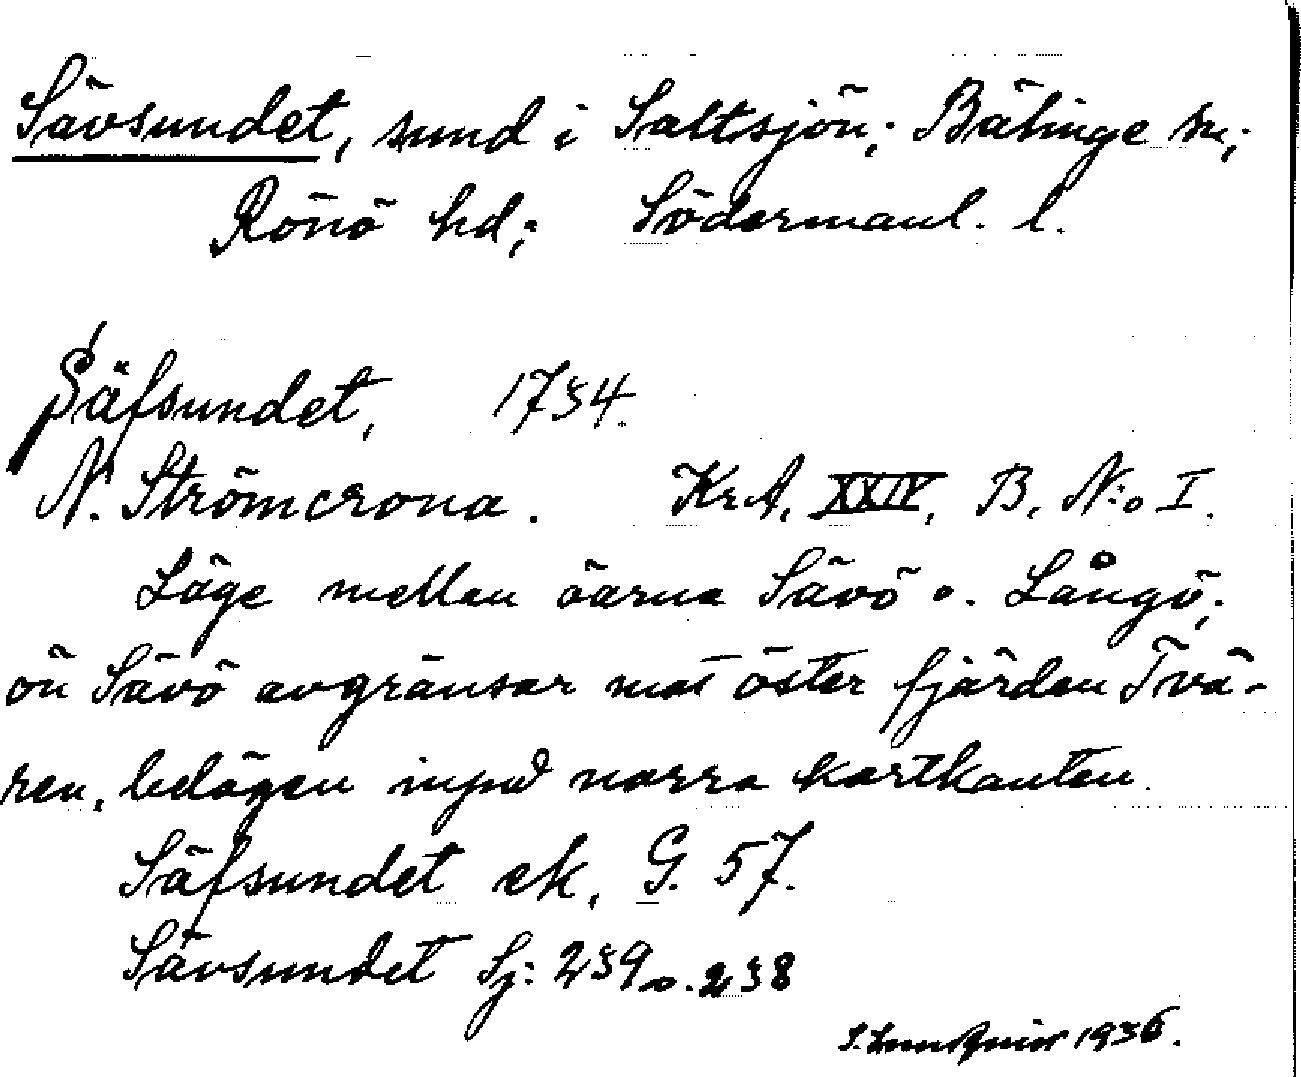 Sävsundet, sund i Saltsjön; Bälinge sn;
Rönö hd; Södermanl. l.
Säfsundet, 1734.
N. Strömcrona. KrA, XXIV, B, N:o I.
Läge mellan öarna Sävö o. Långö;
ön Sävö avgränsar mot öster fjärden Tvä-
ren, belägen invid norra kartkanten.
Säfsundet ek, G. 57.
Sävsundet Sj: 239 o. 238
1936.